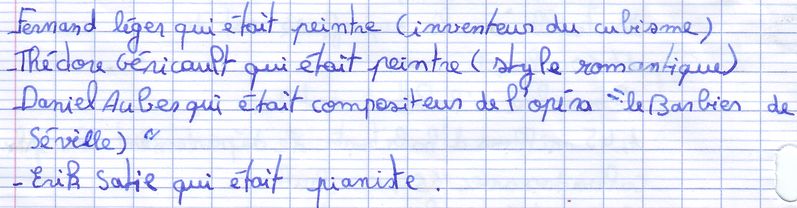 - Fernand léger qui était peintre (inventeur du cubisme)
- Thédore Géricault qui était peintre (style romantique)
- Daniel Auber qui était compositeur de l'opéra "le Barbier de
Séville) "
- Erik Satie qui était pianiste.